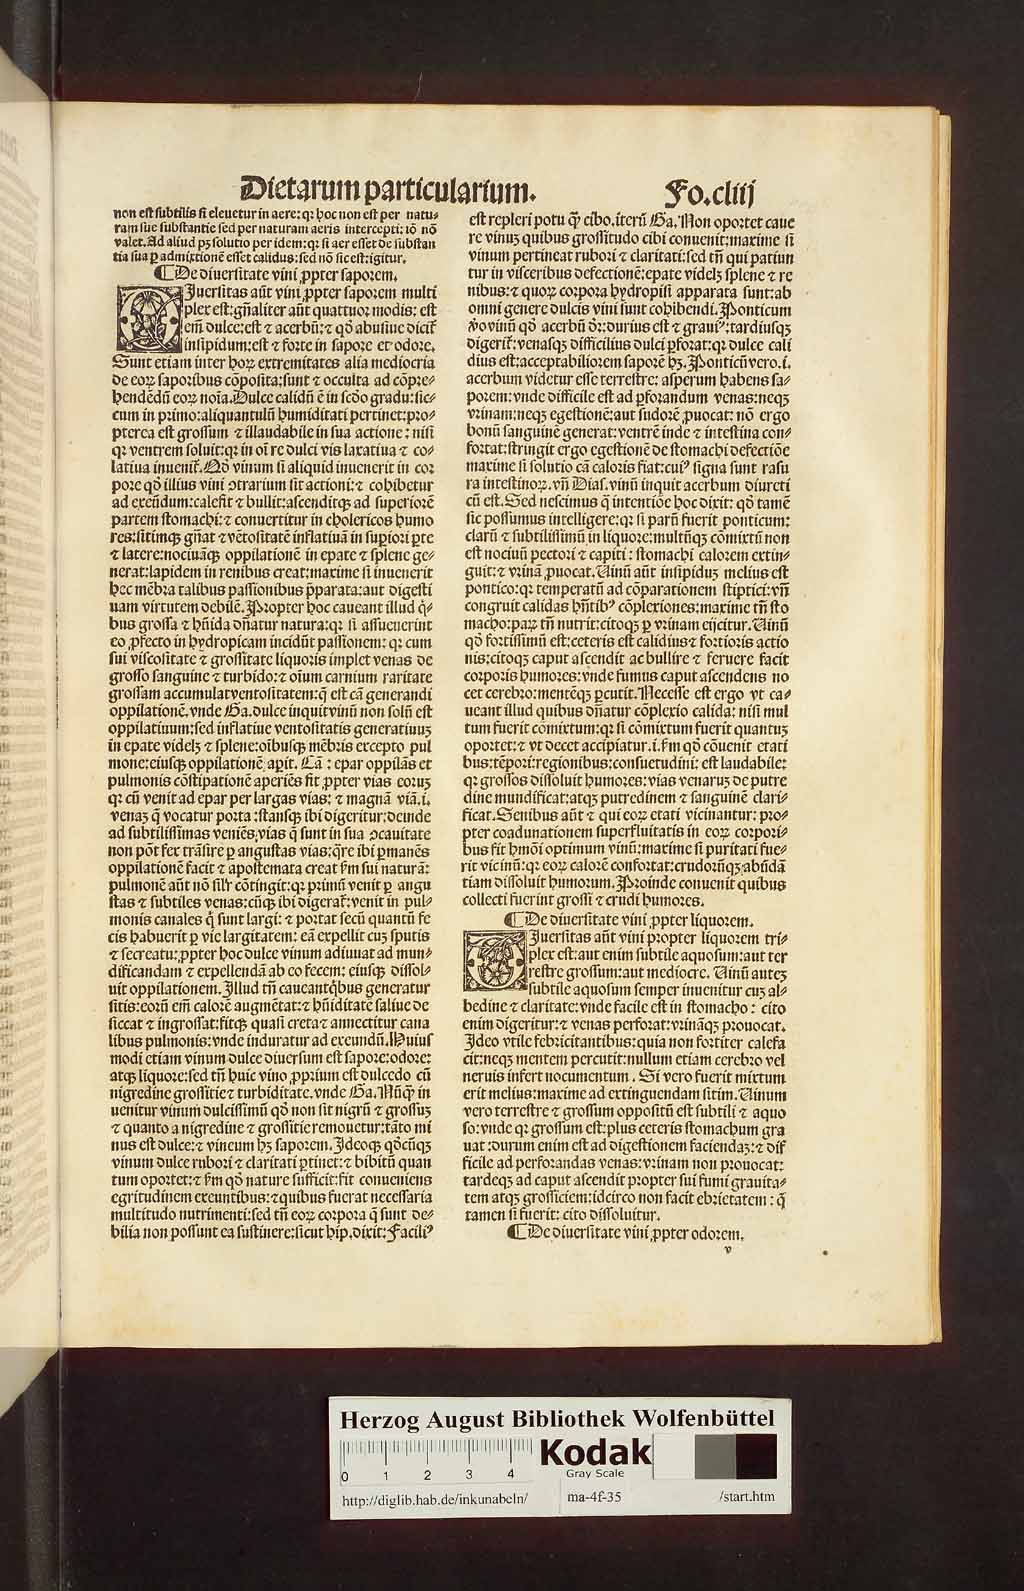 Dietarum particularium. Fo.cliij
non est subtilis si eleuetur in aere: qꝛ hoc non est per natu⸗
ram sue substantie sed per naturam aeris intercepti: iō nō
valet. Ad aliud pꝫ solutio per idem: qꝛ si aer esset de substan
tia sua ꝑ admixtionē esset calidus: sed nō sic est: igitur.
¶ De diuersitate vini ꝓpter saporem.
DIuersitas aūt vini ꝓpter saporem multi
plex est: gñaliter aūt quattuor modis: est
em̄ dulce: est ⁊ acerbū: ⁊ qđ abusiue dicit̄
insipidum: est ⁊ forte in sapore et odore.
Sunt etiam inter hoꝝ extremitates alia mediocria
de eoꝝ saporibus cōposita: sunt ⁊ occulta ad cōpre⸗
hendēdū eoꝝ noīa. Dulce calidū ē in scđo gradu: sic⸗
cum in primo: aliquantulū humiditati pertinet: pro⸗
pterea est grossum ⁊ illaudabile in sua actione: nisi
qꝛ ventrem soluit: qꝛ in oī re dulci vis laxatiua ⁊ co⸗
latiua inuenit̄. Qđ vinum si aliquid inuenerit in cor
pore qđ illius vini ↄtrarium sit actioni: ⁊ cohibetur
ad exeūdum: calefit ⁊ bullit: ascenditqꝫ ad superiorē
partem stomachi: ⁊ conuertitur in cholericos humo
res: sitimqꝫ gñat ⁊ vētositatē inflatiuā in suꝑiori ꝑte
⁊ latere: nociuāqꝫ oppilationē in epate ⁊ splene ge⸗
nerat: lapidem in renibus creat: maxime si inuenerit
hec mēbra talibus passionibus p̄parata: aut digesti
uam virtutem debilē. Propter hoc caueant illud q̄⸗
bus grossa ⁊ hūida dn̄atur natura: qꝛ si assueuerint
eo ꝓfecto in hydropicam incidūt passionem: qꝛ cum
sui viscositate ⁊ grossitate liquoris implet venas de
grosso sanguine ⁊ turbido: ⁊ oīum carnium raritate
grossam accumulat ventositatem: q̄ est cā generandi
oppilationē. vnde Ga. dulce inquit vinū non solū est
oppilatiuum: sed inflatiue ventositatis generatiuuꝫ
in epate videlꝫ ⁊ splene: oībusqꝫ mēbris excepto pul
mone: eiusqꝫ oppilationē aꝑit. Cā: epar oppilās et
pulmonis cōstipationē aperiēs sit ꝓpter vias eoruꝫ
qꝛ cū venit ad epar per largas vias: ⁊ magnā viā. i.
venaꝫ q̄ vocatur porta: stansqꝫ ibi digeritur: deinde
ad subtilissimas veniēs, vias q̄ sunt in sua ↄcauitate
non pōt fex trāsire ꝑ angustas vias: q̄re ibi ꝑmanēs
oppilationē facit ⁊ apostemata creat ẜm sui naturā:
pulmonē aūt nō sil̄r cōtingit: qꝛ primū venit ꝑ angu
stas ⁊ subtiles venas: cūqꝫ ibi digerat̄: venit in pul⸗
monis canales q̄ sunt largi: ⁊ portat secū quantū fe
cis habuerit ꝑ vie largitatem: eā expellit cuꝫ sputis
⁊ secreatu: ꝓpter hoc dulce vinum adiuuat ad mun⸗
dificandam ⁊ expellendā ab eo fecem: eiusqꝫ dissol⸗
uit oppilationem. Illud tn̄ caueant qbus generatur
sitis: eorū em̄ calorē augmētat: ⁊ hūiditatē saliue de
siccat ⁊ ingrossat: fitqꝫ quasi creta ⁊ annectitur cana
libus pulmonis: vnde induratur ad exeundū. Huius
modi etiam vinum dulce diuersum est sapore: odore:
atqꝫ liquore: sed tn̄ huic vino ꝓprium est dulcedo cū
nigredine grossitie ⁊ turbiditate. vnde Ga. Nūqꝫ in
uenitur vinum dulcissimū qđ non sit nigrū ⁊ grossuꝫ
⁊ quanto a nigredine ⁊ grossitie remouetur: tāto mi
nus est dulce: ⁊ vineum hꝫ saporem. Ideoqꝫ qđcūqꝫ
vinum dulce rubori ⁊ claritati ꝑtinet: ⁊ bibitū quan
tum oportet: ⁊ ẜm qđ nature sufficit: fit conueniens
egritudinem exeuntibus: ⁊ quibus fuerat necessaria
multitudo nutrimenti: sed tn̄ eoꝝ corpora q̄ sunt de⸗
bilia non possunt ea sustinere: sicut hip. dixit: Faciliꝰ
est repleri potu qꝫ cibo. iterū Ga. Non oportet caue
re vinuꝫ quibus grossitudo cibi conuenit: maxime si
vinum pertineat rubori ⁊ claritati: sed tn̄ qui patiun
tur in visceribus defectionē: epate videlꝫ splene ⁊ re
nibus: ⁊ quoꝝ corpora hydropisi apparata sunt: ab
omni genere dulcis vini sunt cohibendi. Ponticum
ꝟo vinū qđ acerbū dr̄: durius est ⁊ grauiꝰ: tardiusqꝫ
digerit̄: venasqꝫ difficilius dulci ꝑforat: qꝛ dulce cali
dius est: acceptabiliorem saporē hꝫ. Ponticū vero. i.
acerbum videtur esse terrestre: asperum habens sa⸗
porem: vnde difficile est ad ꝑforandum venas: neqꝫ
vrinam: neqꝫ egestionē: aut sudorē ꝓuocat: nō ergo
bonū sanguinē generat: ventrē inde ⁊ intestina con⸗
fortat: stringit ergo egestionē de stomachi defectiōe
maxime si solutio cā caloris fiat: cuiꝰ signa sunt rasu
ra intestinoꝝ. vn̄ Dias. vinū inquit acerbum diureti
cū est. Sed nescimus q̄ intentiōe hoc dixit: qđ tamē
sic possumus intelligere: qꝛ si parū fuerit ponticum:
clarū ⁊ subtilissimū in liquore: multūqꝫ cōmixtū non
est nociuū pectori ⁊ capiti: stomachi calorem extin⸗
guit: ⁊ vrinā ꝓuocat. Uinū aūt insipiduꝫ melius est
pontico: qꝛ temperatū ad cōparationem stiptici: vn̄
congruit calidas hn̄tibꝰ cōplexiones: maxime tn̄ sto
macho: paꝝ tn̄ nutrit: citoqꝫ ꝑ vrinam eijcitur. Uinū
qđ fortissimū est: ceteris est calidius ⁊ fortioris actio
nis: citoqꝫ caput ascendit ac bullire ⁊ feruere facit
corporis humores: vnde fumus caput ascendens no
cet cerebro: mentēqꝫ ꝑcutit. Necesse est ergo vt ca⸗
ueant illud quibus dn̄atur cōplexio calida: nisi mul
tum fuerit comixtum: qꝛ si cōmixtum fuerit quantuꝫ
oportet: ⁊ vt decet accipiatur. i. ẜm qđ cōuenit etati
bus: tēpori: regionibus: consuetudini: est laudabile:
qꝛ grossos dissoluit humores: vias venaruꝫ de putre
dine mundificat: atqꝫ putredinem ⁊ sanguinē clari⸗
ficat. Senibus aūt ⁊ qui eoꝝ etati vicinantur: pro⸗
pter coadunationem superfluitatis in eoꝝ corpori⸗
bus fit hmōi optimum vinū: maxime si puritati fue⸗
rit vicinū: qꝛ eoꝝ calorē confortat: crudorūqꝫ abūdā
tiam dissoluit humorum. Proinde conuenit quibus
collecti fuerint grossi ⁊ crudi humores.
¶ De diuersitate vini ꝓpter liquorem.
DIuersitas aūt vini propter liquorem tri⸗
plex est: aut enim subtile aquosum: aut ter
restre grossum: aut mediocre. Uinū auteꝫ
subtile aquosum semper inuenitur cuꝫ al⸗
bedine ⁊ claritate: vnde facile est in stomacho: cito
enim digeritur: ⁊ venas perforat: vrināqꝫ prouocat.
Ideo vtile febricitantibus: quia non fortiter calefa
cit: neqꝫ mentem percutit: nullum etiam cerebro vel
neruis infert nocumentum. Si vero fuerit mixtum
erit melius: maxime ad extinguendam sitim. Uinum
vero terrestre ⁊ grossum oppositū est subtili ⁊ aquo
so: vnde qꝛ grossum est: plus ceteris stomachum gra
uat: durum enim est ad digestionem faciendaꝫ: ⁊ dif
ficile ad perforandas venas: vrinam non prouocat:
tardeqꝫ ad caput ascendit propter sui fumi grauita⸗
tem atqꝫ grossiciem: idcirco non facit ebrietatem: q̄
tamen si fuerit: cito dissoluitur.
¶ De diuersitate vini ꝓpter odorem.
v
Herzog August Bibliothek Wolfenbüttel
0 1 2 3 4
Kodak
Gray Scale
http://diglib.hab.de/inkunabeln/ ma-4f-35 /start.htm